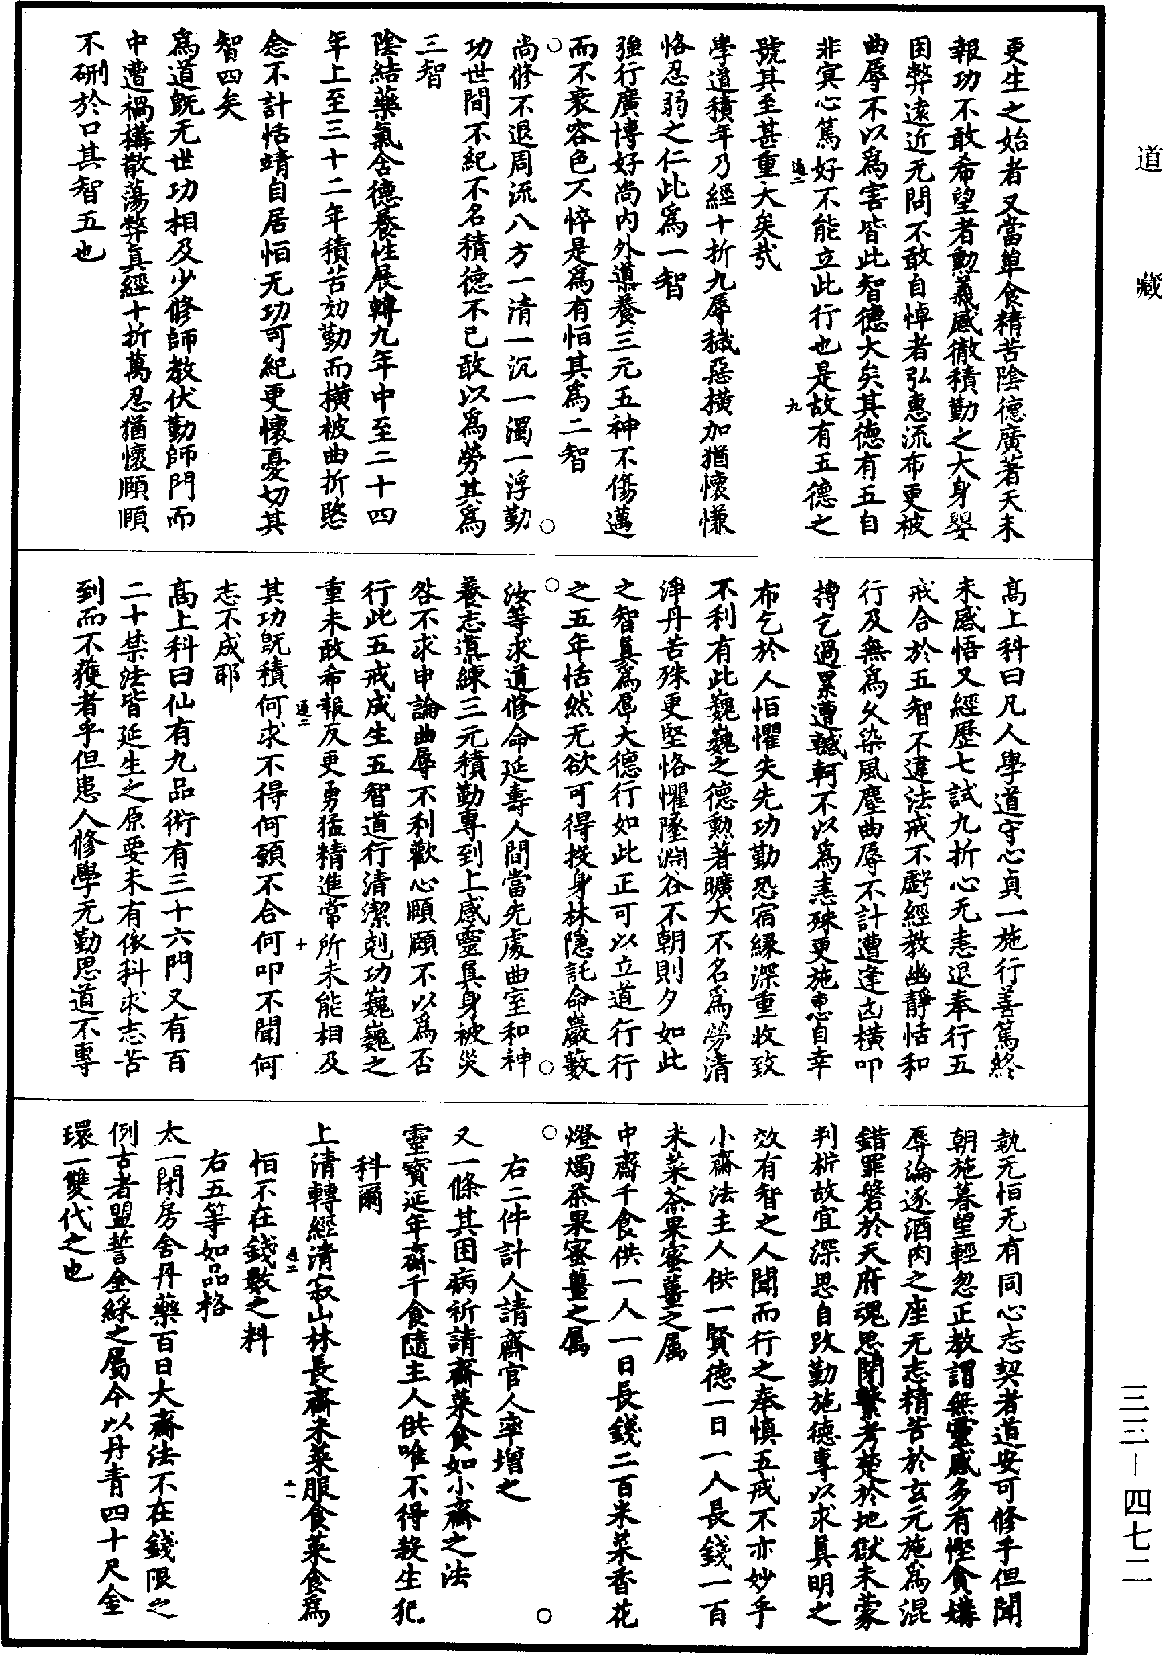 道藏
三三—四七二
更生之始者又當單食精苦陰德廣著天未
報功不敢希望者勳義感徹積勤之大身嬰
困弊遠近无問不敢自悼者弘惠流布更被
曲辱不以爲害皆此智德大矣其德有五自
非冥心篤好不能立此行也是故有五德之
通二 九
號其至甚重大矣哉
學道積年乃經十折九辱穢惡橫加猶懷慊
恪忍弱之仁此爲一智
強行廣博好尚內外導養三元五神不傷邁
而不衰容色不悴是爲有怕其爲二智
尚修不退周流八方一清一沉一濁一浮勤
功世間不紀不名積德不已敢以爲勞其爲
三智
陰結藥氣含德養性展轉九年中至二十四
年上至三十二年積苦効勤而橫被曲折愍
念不計恬靖自居怕无功可紀更懷憂切其
智四矣
爲道既无世功相及少修師教伏勤師門而
中遭禍構散蕩弊真經十折萬忍猶懷願願
不硎於口其智五也
高上科曰凡人學道守心貞一施行善篤終
未感悟又經歷七試九折心无恚退奉行五
戒合於五智不違法戒不翳經教幽靜恬和
行及無爲久染風塵曲辱不計遭逢凶橫叩
搏乞過累遭轗軻不以爲恚殊更施惠自幸
布乞於人怕懼失先功勤恐宿緣深重收致
不利有此巍巍之德勲著曠大不名爲勞清
淨丹苦殊更堅恪懼墜淵谷不朝則夕如此
之智真爲辱大德行如此正可以立道行行
之五年恬然无欲可得投身林隱託命巖藪
汝等求道修命延壽人間當先處曲室和神
養志眞練三元積勤專到上感靈真身被災
咎不求申論曲辱不利歡心願願不以爲否
行此五戒成生五智道行清潔剋功巍巍之
重未敢希報反更勇猛精進常所未能相及
通二 十
其功既積何求不得何願不合何叩不聞何
志不成耶
高上科曰仙有九品術有三十六門又有百
二十禁法皆延生之原要未有依科求志苦
到而不獲者乎但患人修學无勤思道不專
執无怕无有同心志契者道安可修乎但聞
朝施暮望輕忽正教謂無靈感多有慳貪媾
辱論逐酒肉之座无志精苦於玄元施爲混
錯罪磐於天府魂思閉繫考楚於地獄未蒙
判析故宜深思自改勤施德專以求真明之
效有智之人聞而行之奉慎五戒不亦妙乎
小齋法主人供一賢德一日一人長錢一百
米菜茶果蜜薑之屬
中齋千食供一人一日長錢二百米菜香花
燈燭茶果蜜薑之屬
右二件計人請齋官人率增之
又一條其困病祈請齋菜食如小齋之法
靈寶延年齋千食隨主人供唯不得殺生犯
科爾
上清轉經清寂山林長齋米菜服食菜食爲
通二 十一
怕不在錢數之料
右五等如品格
太一閉房舍丹藥百日大齋法不在錢限之
例古者盟誓金綵之屬今以丹青四十尺金
環一雙代之也